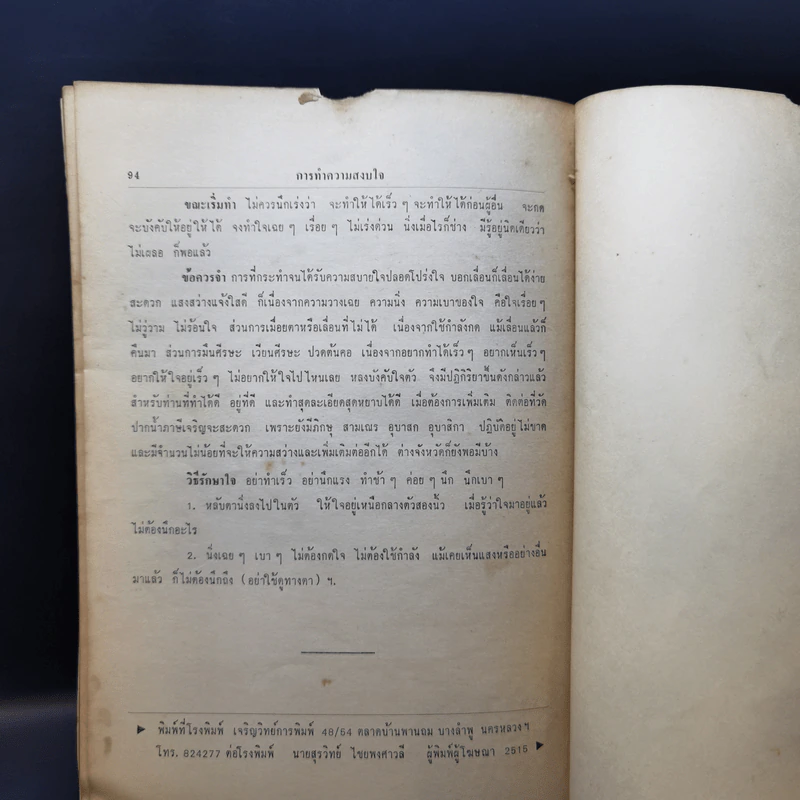 94 การทำความสงบใจ
ขณะเริ่มทำ ไม่ควรนึกเร่งว่า จะทำให้ได้เร็ว ๆ จะทำให้ได้ก่อนผู้อื่น จะกด
จะบังคับให้อยู่ให้ได้ จงทำใจเฉย ๆ เรื่อย ๆ ไม่เร่งด่วน นิ่งเมื่อไรก็ช่าง มีรู้อยู่นิดเดียวว่า
ไม่เผลอ ก็พอแล้ว
ข้อควรจำ การที่กระทำจนได้รับความสบายใจปลอดโปร่งใจ บอกเลื่อนก็เลื่อนได้ง่าย
สะดวก แสงสว่างแจ้งใสดี ก็เนื่องจากความวางเฉย ความนิ่ง ความเบาของใจ คือใจเรื่อย ๆ
ไม่วู่วาม ไม่ร้อนใจ ส่วนการเมื่อยตาหรือเลื่อนที่ไม่ได้ เนื่องจากใช้กำลังกด แม้เลื่อนแล้วก็
คืนมา ส่วนการมึนศีรษะ เวียนศีรษะ ปวดต้นคอ เนื่องจากอยากทำได้เร็ว ๆ อยากเห็นเร็ว ๆ
อยากให้ใจอยู่เร็ว ๆ ไม่อยากให้ใจไปไหนเลย หลงบังคับใจตัว จึงมีปฏิกิริยาขึ้นดังกล่าวแล้ว
สำหรับท่านที่ทำได้ดี อยู่ที่ดี และทำสุดละเอียดสุดหยาบได้ดี เมื่อต้องการเพิ่มเติม ติดต่อที่วัด
ปากน้ำภาษีเจริญจะสะดวก เพราะยังมีภิกษุ สามเณร อุบาสก อุบาสิกา ปฏิบัติอยู่ไม่ขาด
และมีจำนวนไม่น้อยที่จะให้ความสว่างและเพิ่มเติมต่ออีกได้ ต่างจังหวัดก็ยังพอมีบ้าง
วิธีรักษาใจ อย่าทำเร็ว อย่านึกแรง ทำช้า ๆ ค่อย ๆ นึก นึกเบา ๆ
1. หลับตานิ่งลงไปในตัว ให้ใจอยู่เหนือกลางตัวสองนิ้ว เมื่อรู้ว่าใจมาอยู่แล้ว
ไม่ต้องนึกอะไร
2. นิ่งเฉย ๆ เบา ๆ ไม่ต้องกดใจ ไม่ต้องใช้กำลัง แม้เคยเห็นแสงหรืออย่างอื่น
มาแล้ว ก็ไม่ต้องนึกถึง (อย่าใช้ดูทางตา) ฯ.
พิมพ์ที่โรงพิมพ์ เจริญวิทย์การพิมพ์ 48/54 ตลาดบ้านพานถม บางลำพู นครหลวงฯ
โทร. 824277 ต่อโรงพิมพ์ นายสุรวิทย์ ไชยพงศาวลี ผู้พิมพ์ผู้โฆษณา 2515